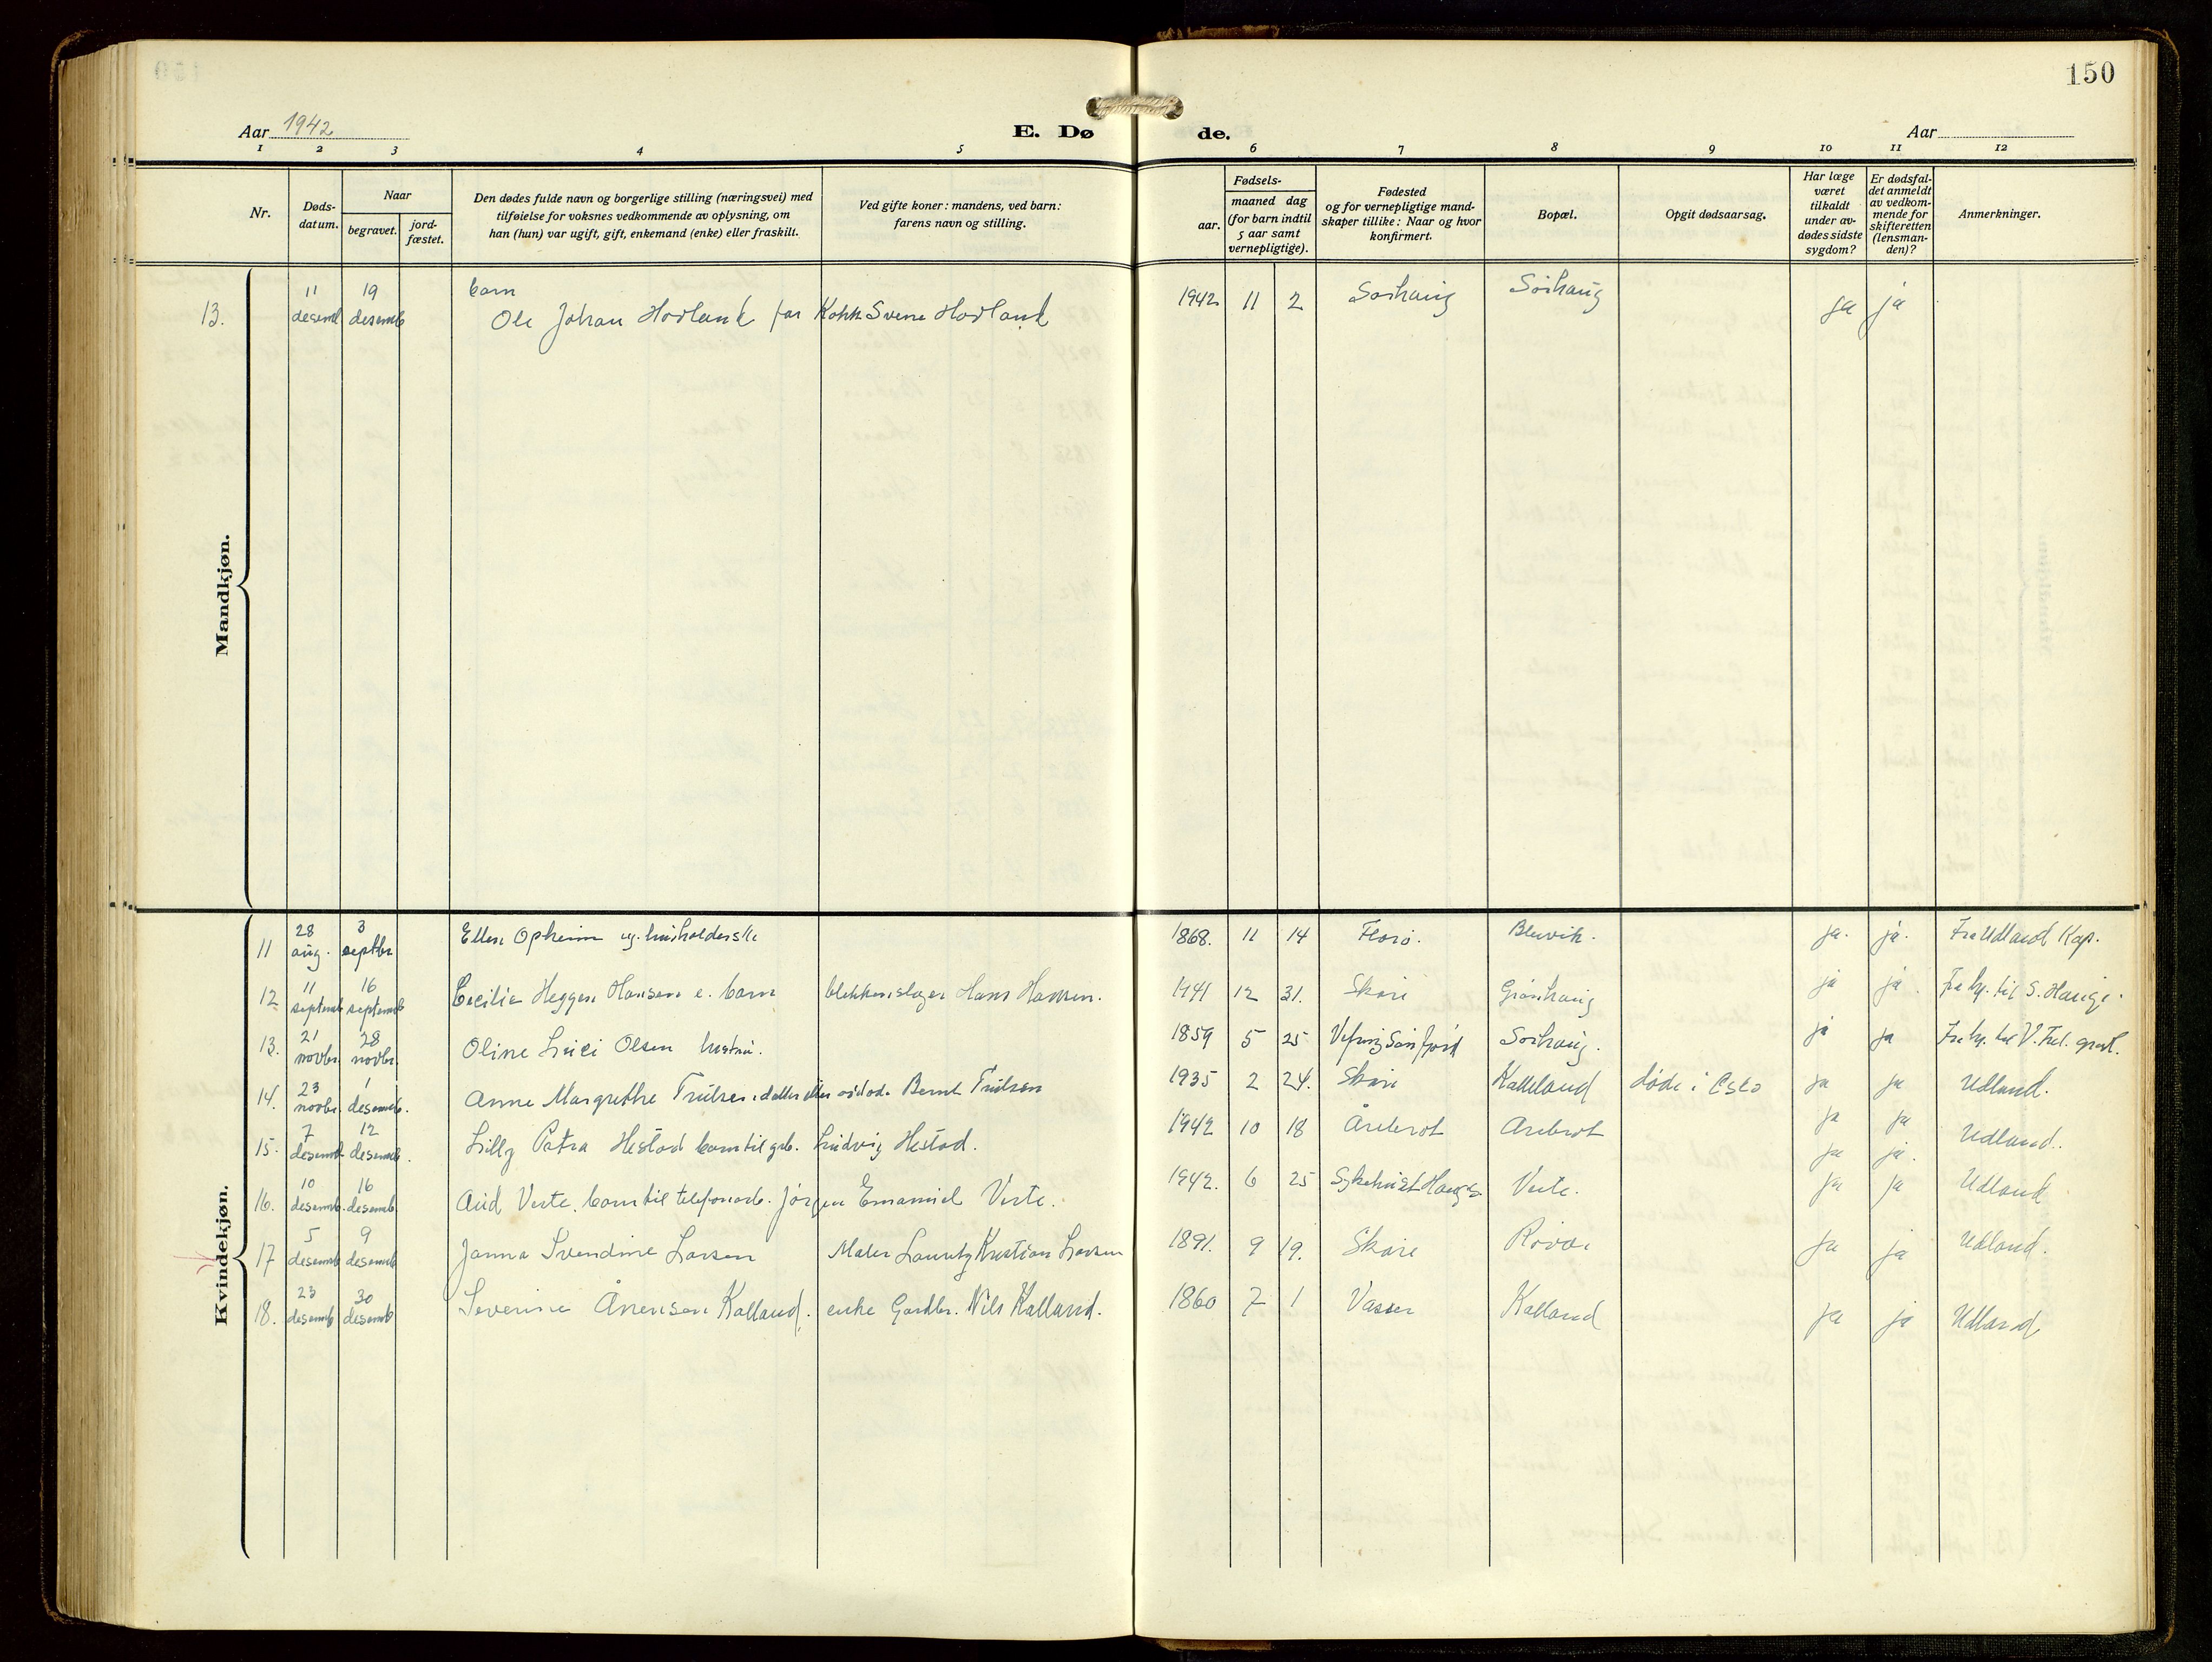 150
Aar 1942
E. Dø de.
Aar
1 2 3 4 5 6 7 8 9 10 11 12
Nr.
Døds-
datum.
Naar
begravet.
jord-
fæstet.
Den dødes fulde navn og borgerlige stilling (næringsvei) med
tilføielse for voksnes vedkommende av oplysning, om
han (hun) var ugift, gift, enkemand (enke) eller fraskilt.
Ved gifte koner: mandens, ved barn:
farens navn og stilling.
Fødsels-
aar.
maaned dag
(for barn indtil
5 aar samt
vernepligtige).
Fødested
og for vernepligtige mand-
skaper tillike: Naar og hvor
konfirmert.
Bopæl.
Opgit dødsaarsag.
Har læge
været
tilkaldt
under av-
dødes sidste
sygdom?
Er dødsfal-
det anmeldt
av vedkom-
mende for
skifteretten
(lensman-
den)?
Anmerkninger.
Mandkjøn.
11 19 barn
13. desemb desemb Ole Johan Hovland far Kokk Svene Hovland 1942 11 2 Sørhaug Sørhaug ja ja
Kvindekjøn.
28 3
11 aug. septbr Ellen Opheim ug. husholderske 1868. 11 14 Florø. Bleivik. ja. ja. Fra Udland Kap.
11 16
12 septemb septemb Cecilie Heggen Hansen e. barn blekkenslager Hans Hansen. 1941 12 31. Skåre Grønhaug ja ja. Fra hp. til S. Hauge.
21 28
13. novbr. novbr. Oline Olsen hustru. 1859 5 25 Sørhaug. ja ja
23 1
14. novbr. desemb. Anne Margrethe Trulsen, datter Bernt Trulsen 1935 2 24. Skåre Kalleland døde i Oslo ja ja Udland.
7 12
15. desemb desemb. Lilly Petra Hestad barn til grb. Ludvig Hestad. 1942 10 18 Årebrot Årebrot ja ja Udland.
ja ja.
10 16
16. desemb. desemb. Aud Veste, barn til telefonarb. Jørgen Emanuel Veste. 1942. 6 25 Sykehuset Hauges. Veste. ja ja Udland
5 9
17 desemb desemb Janna Svendine Larsen Maler Lauritz Kristian Larsen 1891. 9 19. Skåre Røvær ja ja Udland.
23 30
18. desemb desemb Severine Ånensen Kalland. enke Gardbr. Nils Kalland. 1860 7 1 Kalland ja ja Udland